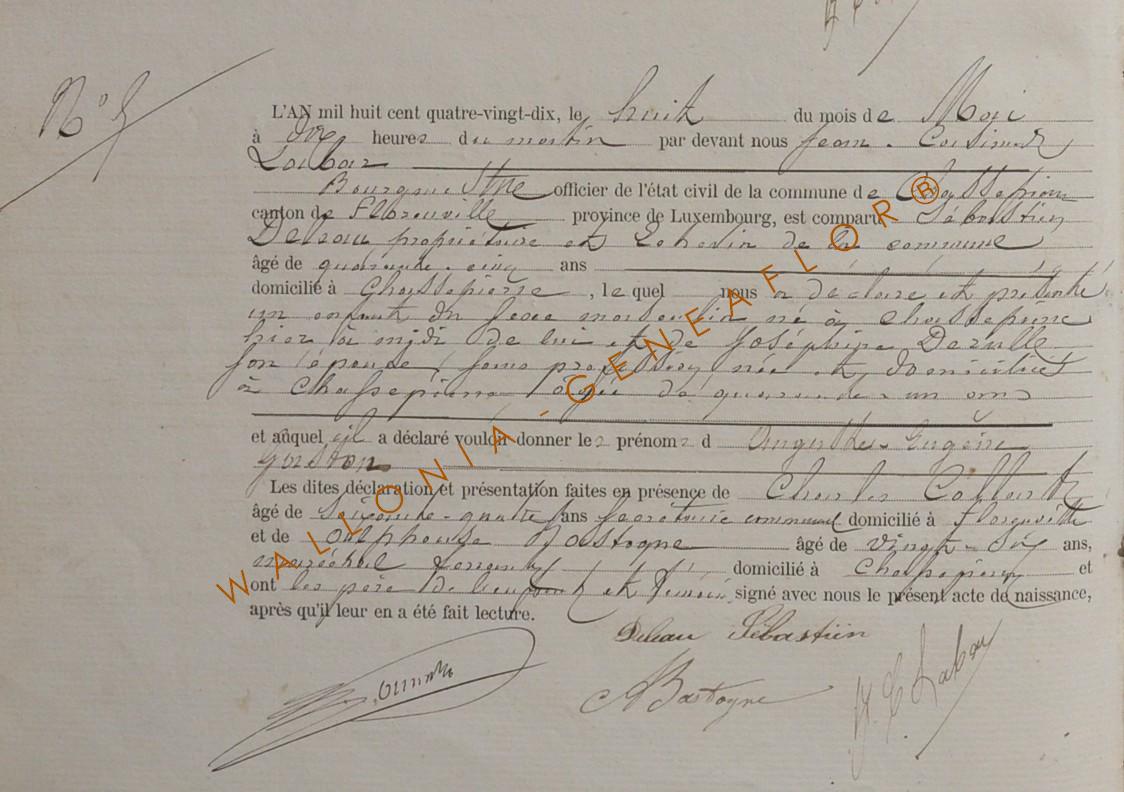 N° 5
L'AN mil huit cent quatre-vingt-dix, le huit du mois de Mai
à dix heures du matin par devant nous Jean
Bourgmestre officier de l'état civil de la commune de Chassepierre
canton de Florenville province de Luxembourg, est comparu Sébastien
propriétaire et Echevin de la commune
âgé de quarante-cinq ans
domicilié à Chassepierre, le quel nous a déclaré et présenté
un enfant du sexe masculin né à Chassepierre
hier à midi de lui et de Joséphine
son épouse, sans profession née et domiciliée
à Chassepierre âgée de quarante-un ans
et auquel il a déclaré vouloir donner les prénoms d Auguste Eugène
Gaston
Les dites déclaration et présentation faites en présence de Charles
âgé de soixante-quatre ans secrétaire communal domicilié à Florenville
et de Alphonse Bastogne âgé de vingt-six ans,
maréchal ferrant domicilié à Chassepierre et
ont les père de l'enfant et témoins signé avec nous le présent acte de naissance,
après qu'il leur en a été fait lecture.
Sébastien
A Bastogne
WALLONIA-GENEAFLOR®